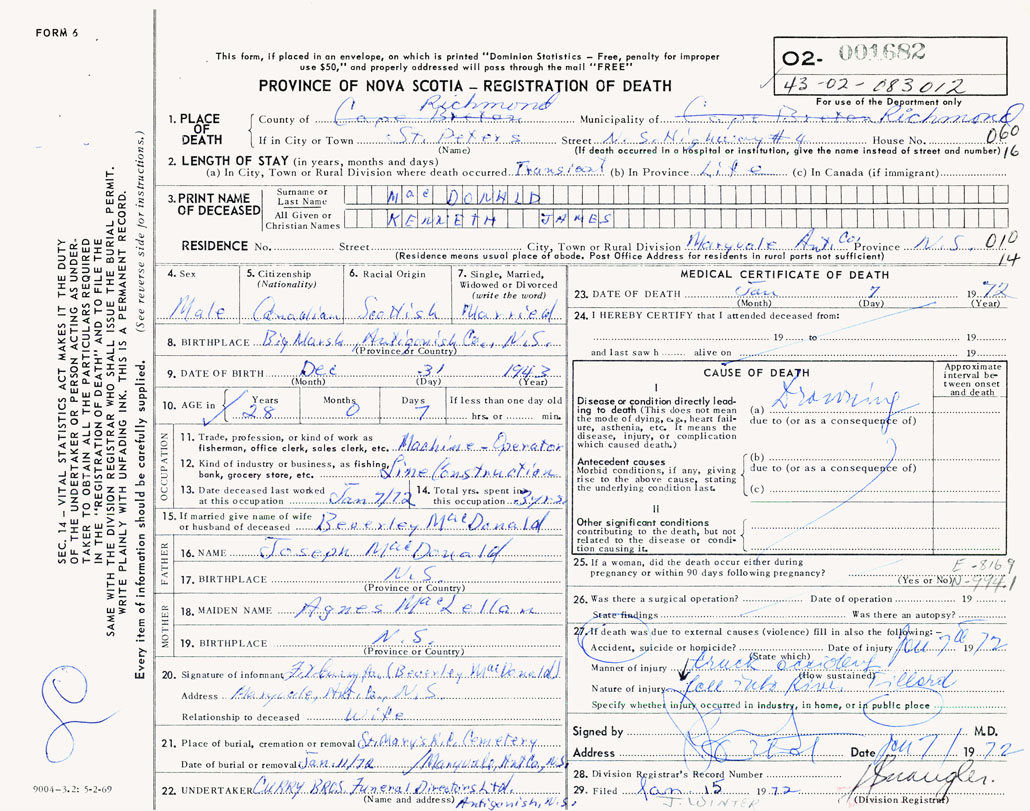 FORM 6
O2- 001682
43-02-083012
For use of the Department only
This form, if placed in an envelope, on which is printed "Dominion Statistics – Free, penalty for improper
use $50," and properly addressed will pass through the mail "FREE"
PROVINCE OF NOVA SCOTIA – REGISTRATION OF DEATH
Richmond
1. PLACE OF DEATH County of Cape Breton Municipality of Cape Breton Richmond
If in City or Town St. Peters Street N.S. Highway #4 House No. 060
(Name) (If death occurred in a hospital or institution, give the name instead of street and number) 16
2. LENGTH OF STAY (in years, months and days)
(a) In City, Town or Rural Division where death occurred Transient (b) In Province Life (c) In Canada (if immigrant)
3. PRINT NAME OF DECEASED Surname or Last Name MacDONALD
All Given or Christian Names KENNETH JAMES
RESIDENCE No. Street City, Town or Rural Division Maryvale Ant. Co. Province N.S. 010
(Residence means usual place of abode. Post Office Address for residents in rural parts not sufficient) 14
4. Sex 5. Citizenship (Nationality) 6. Racial Origin 7. Single, Married, Widowed or Divorced (write the word)
Male Canadian Scottish Married
8. BIRTHPLACE Big Marsh, Antigonish Co., N.S.
(Province or Country)
9. DATE OF BIRTH Dec 31 1943
(Month) (Day) (Year)
10. AGE in Years Months Days If less than one day old
28 0 7 hrs. or min.
OCCUPATION
11. Trade, profession, or kind of work as fisherman, office clerk, sales clerk, etc. Machine-Operator
12. Kind of industry or business, as fishing, bank, grocery store, etc. Line Construction
13. Date deceased last worked at this occupation Jan 7/72 14. Total yrs. spent in this occupation 3 yrs.
15. If married give name of wife or husband of deceased Beverley MacDonald
FATHER
16. NAME Joseph MacDonald
17. BIRTHPLACE N.S.
(Province or Country)
MOTHER
18. MAIDEN NAME Agnes MacLellan
19. BIRTHPLACE N.S.
(Province or Country)
20. Signature of informant (Beverley MacDonald)
Address Maryvale, Ant. Co., N.S.
Relationship to deceased Wife
21. Place of burial, cremation or removal St. Mary's R.C. Cemetery
Date of burial or removal Jan. 11/72 Maryvale, Ant Co., N.S.
22. UNDERTAKER CURRY BROS. Funeral Directors Ltd.
(Name and address) Antigonish, N.S.
MEDICAL CERTIFICATE OF DEATH
23. DATE OF DEATH Jan 7 1972
(Month) (Day) (Year)
24. I HEREBY CERTIFY that I attended deceased from:
19 to 19
and last saw h alive on 19
CAUSE OF DEATH
Approximate interval between onset and death
I
Disease or condition directly leading to death (This does not mean the mode of dying, e.g., heart failure, asthenia, etc. It means the disease, injury, or complication which caused death.)
(a) Drowning
due to (or as a consequence of)
Antecedent causes
Morbid conditions, if any, giving rise to the above cause, stating the underlying condition last.
(b)
due to (or as a consequence of)
(c)
II
Other significant conditions
contributing to the death, but not related to the disease or condition causing it.
25. If a woman, did the death occur either during pregnancy or within 90 days following pregnancy? E-8169
(Yes or No) N-994.1
26. Was there a surgical operation? Date of operation 19
State findings Was there an autopsy?
27. If death was due to external causes (violence) fill in also the following: –
Accident, suicide or homicide? Date of injury Jan 7 1972
(State which)
Manner of injury truck accident
(How sustained)
Nature of injury fall into River
Specify whether injury occurred in industry, in home, or in public place
Signed by M.D.
Address Date Jan 7 1972
28. Division Registrar's Record Number
29. Filed Jan 15 1972
(Division Registrar)
J. WINTER
SEC. 14 – VITAL STATISTICS ACT MAKES IT THE DUTY
OF THE UNDERTAKER OR PERSON ACTING AS UNDER-
TAKER TO OBTAIN ALL THE PARTICULARS REQUIRED
IN THE "REGISTRATION OF DEATH" AND TO FILE THE
SAME WITH THE DIVISION REGISTRAR WHO SHALL ISSUE THE BURIAL PERMIT.
WRITE PLAINLY WITH UNFADING INK. THIS IS A PERMANENT RECORD.
Every item of information should be carefully supplied. (See reverse side for instructions.)
9004-3.2: 5-2-69